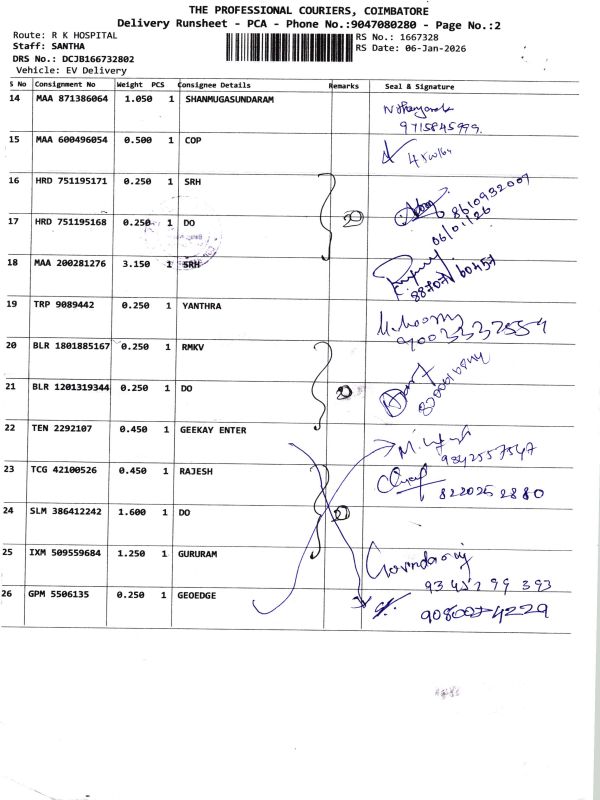 THE PROFESSIONAL COURIERS, COIMBATORE
Delivery Runsheet - PCA - Phone No.:9047080280 - Page No.:2
Route: R K HOSPITAL
Staff: SANTHA
DRS No.: DCJB166732802
Vehicle: EV Delivery
RS No.: 1667328
RS Date: 06-Jan-2026
S No Consignment No Weight PCS Consignee Details Remarks Seal & Signature
14 MAA 871386064 1.050 1 SHANMUGASUNDARAM
9715845999
15 MAA 600496054 0.500 1 COP
16 HRD 751195171 0.250 1 SRH
8610932007
06/01/26
17 HRD 751195168 0.250 1 DO
18 MAA 200281276 3.150 1 SRH
19 TRP 9089442 0.250 1 YANTHRA
20 BLR 1801885167 0.250 1 RMKV
21 BLR 1201319344 0.250 1 DO
22 TEN 2292107 0.450 1 GEEKAY ENTER
9842557547
23 TCG 42100526 0.450 1 RAJESH
8220252880
24 SLM 386412242 1.600 1 DO
25 IXM 509559684 1.250 1 GURURAM
Govindaraj
9345799393
26 GPM 5506135 0.250 1 GEOEDGE
9080074229